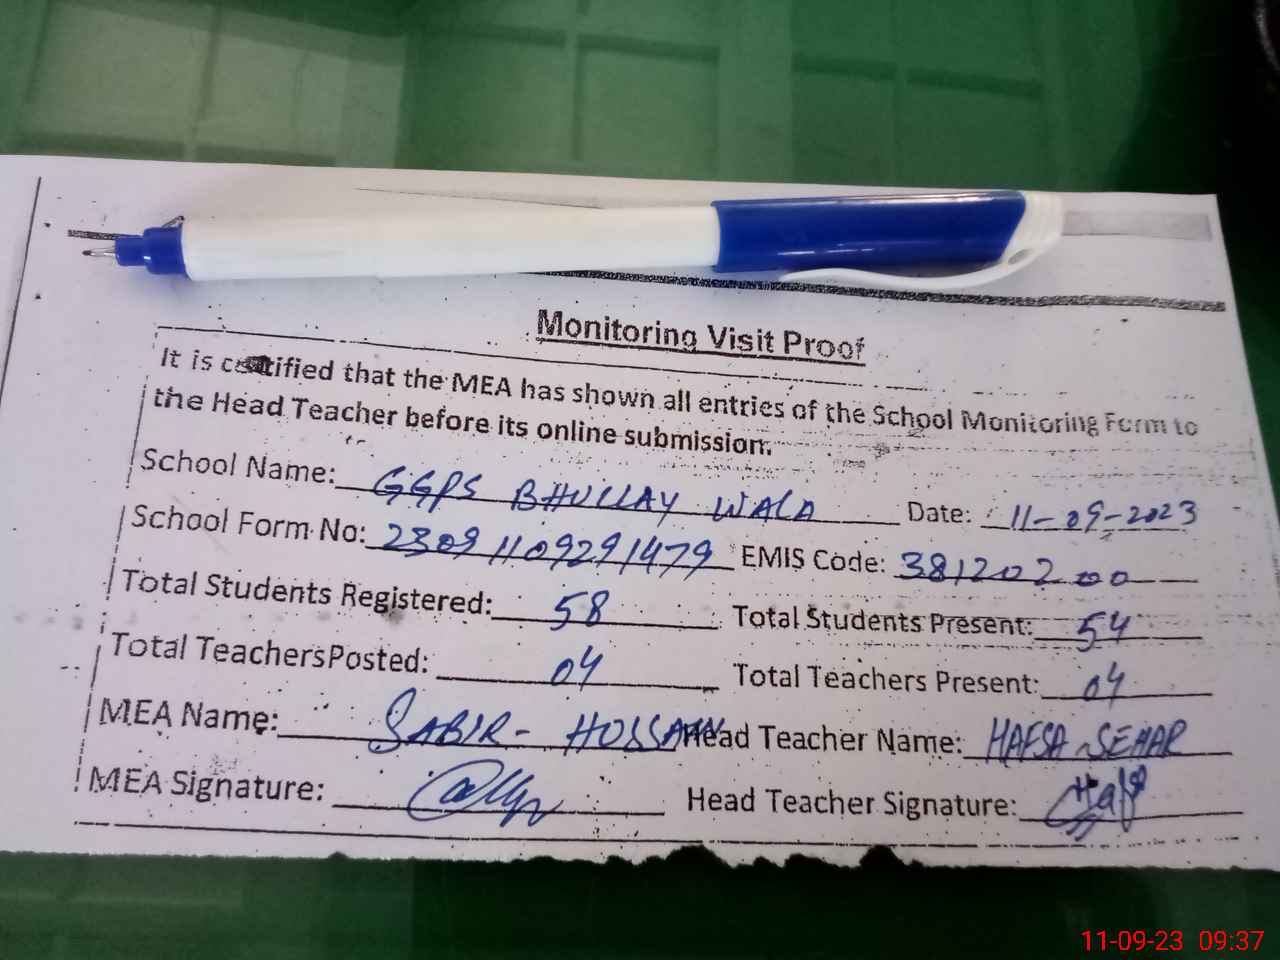 Monitoring Visit Proof
It is certified that the MEA has shown all entries of the School Monitoring Form to
the Head Teacher before its online submission.
School Name: GGPS BHULLAY WALA Date: 11-09-2023
School Form No: 2309 1109291479 EMIS Code: 38120200
Total Students Registered: 58 Total Students Present: 54
Total Teachers Posted: 04 Total Teachers Present: 04
MEA Name: SABIR - HUSSAIN Head Teacher Name: HAFSA SEHAR
MEA Signature: Head Teacher Signature:
11-09-23 09:37